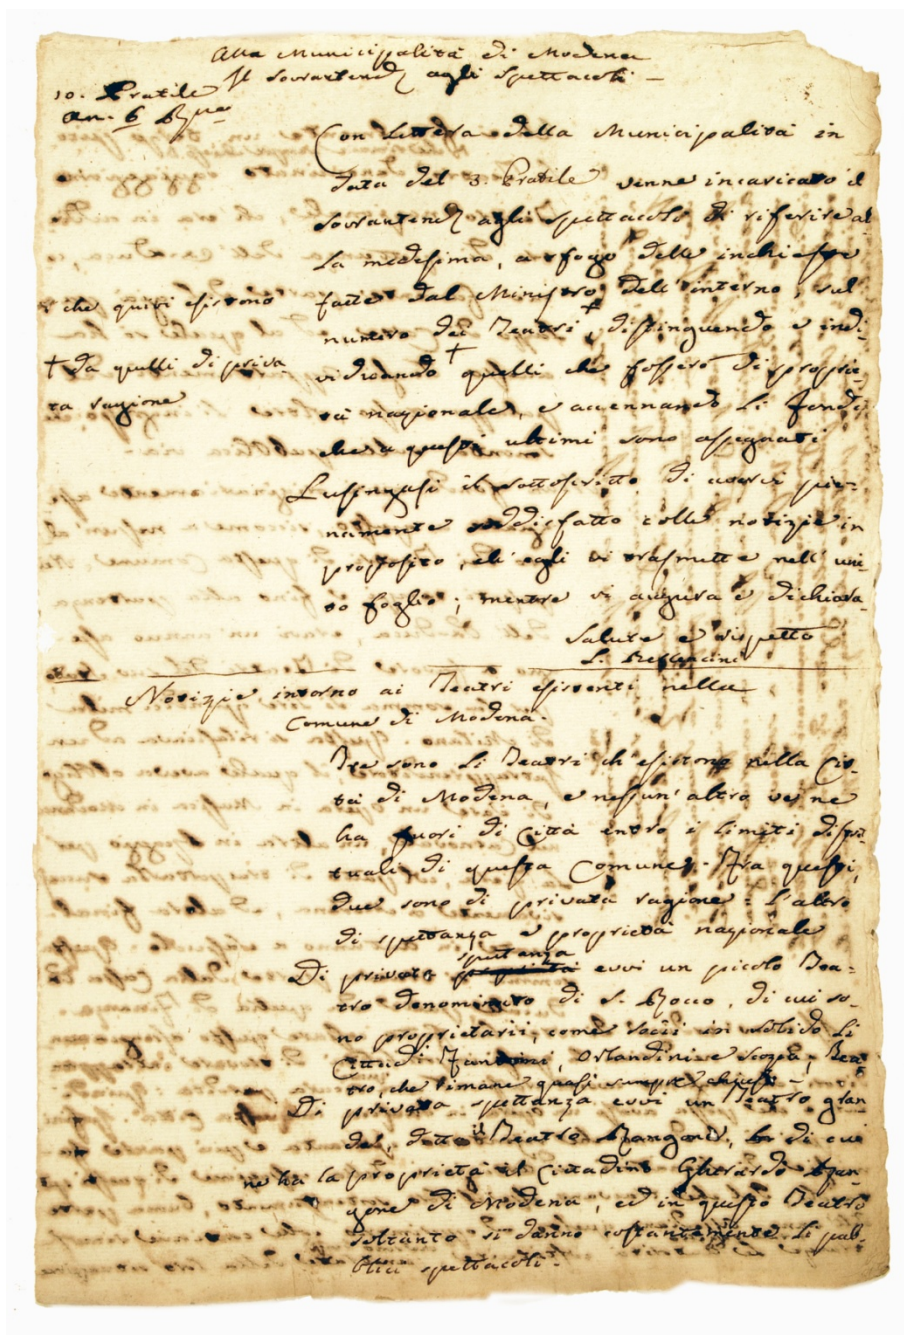 Alla Municipalità di Modena
Il Sovraintend. agli Spettacoli -
10. Pratile
An. 6 Rep.no
Con Lettera della Municipalità in
data del 3. Pratile venne incaricato il
Sovraintend. agli spettacoli di riferire al
la medesima, a sfogo delle inchieste
fatte dal Ministro dell'interno, sul
che quivi esistono
numero dei Teatri, distinguendo e indi-
+ da quelli di priva
ta ragione
viduando + quelli che fossero di proprie-
tà nazionale, e accennando li fondi
che a questi ultimi sono assegnati
Lusingasi il sottoscritto di avervi pie-
namente soddisfatto colle notizie in
proposito, ch'egli vi trasmette nell'uni-
to foglio; mentre vi augura e dichiara
Salute e rispetto
L.
Notizie intorno ai Teatri esistenti nella
Comune di Modena.
Tre sono li Teatri ch'esistono nella Cit-
tà di Modena, e nessun'altro ve ne
ha fuori di Città entro i limiti distret-
tuali di questa Comune. Fra questi,
due sono di privata ragione: l'altro
di spettanza e proprietà nazionale
spettanza
Di privata proprietà evvi un piccolo Tea-
tro denominato di S. Rocco, di cui so-
no proprietarii, come socii in solido li
Cittad.i Orlandini e Scozia, Tea-
tro, che rimane quasi sempre chiuso -
Di privata spettanza evvi un Teatro gran
de, detto il Teatro Rangoni, di cui
ne ha la proprietà il Cittadino Gherardo Ran-
gone di Modena, ed in questo Teatro
soltanto si danno costantemente li pub-
blici spettacoli.